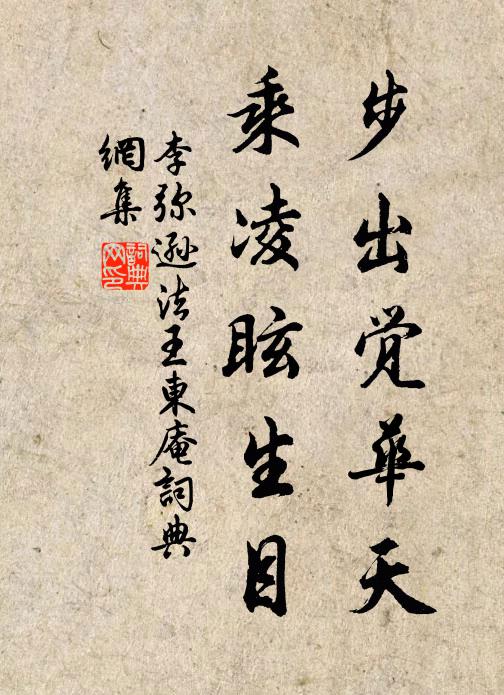 步出觉華天
乘凌眩生目
李弥遜法王東庵詞典
網集
詞典
网印